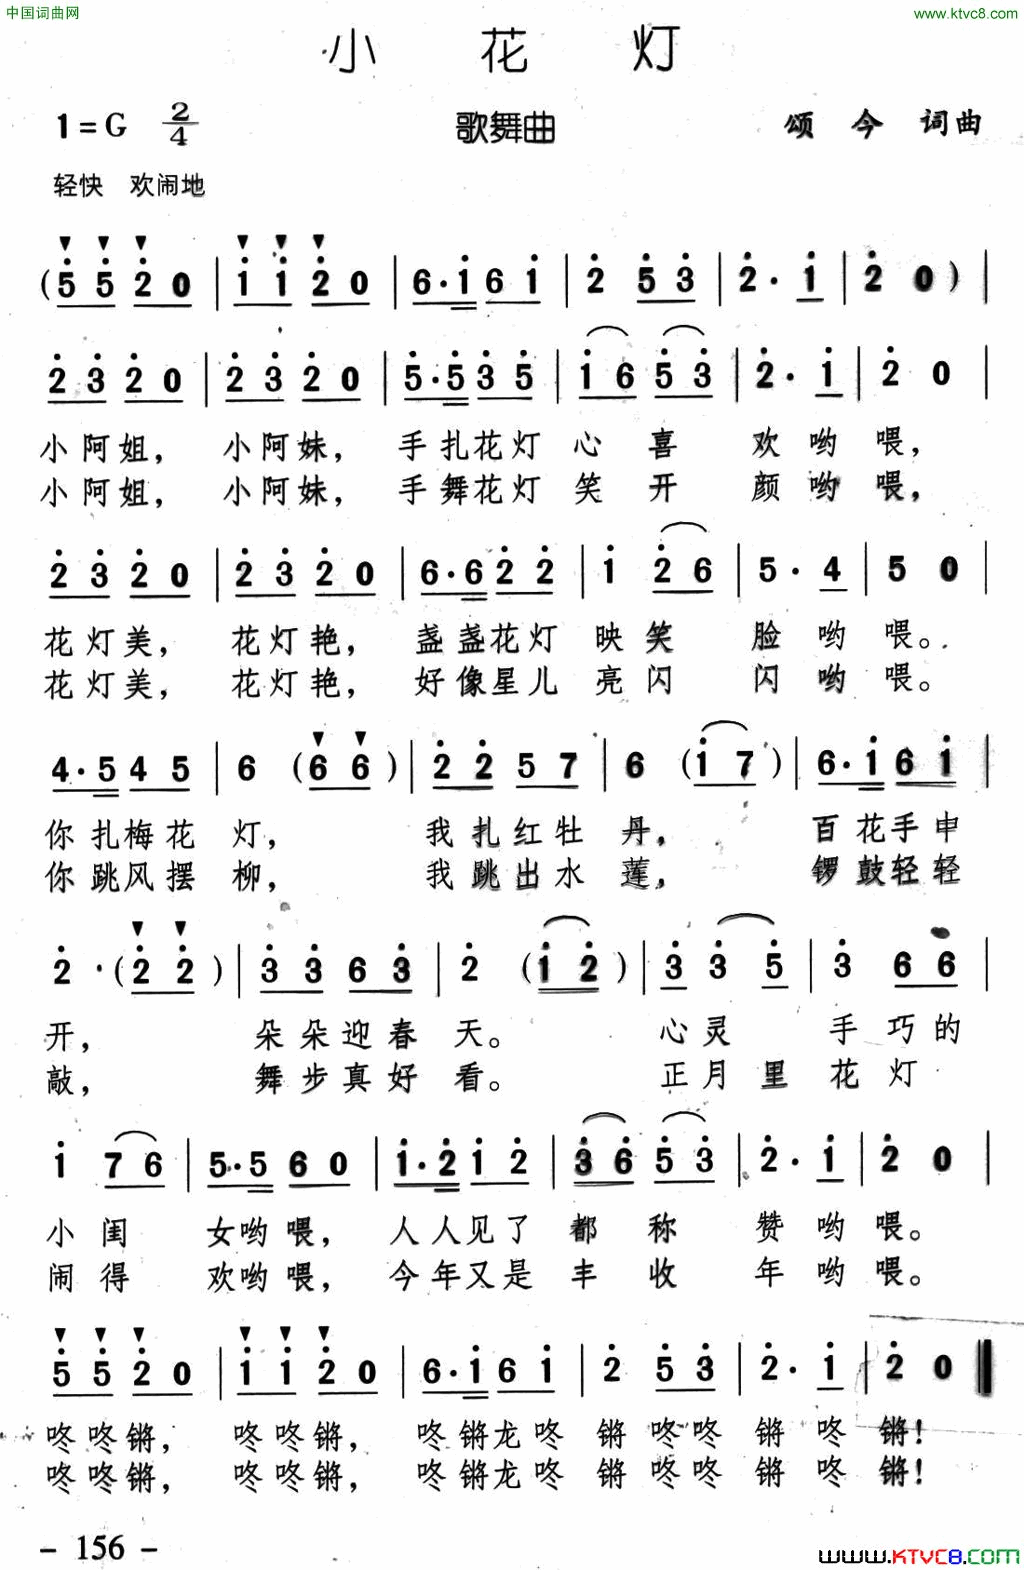 中国词曲网
www.ktvc8.com
小 花 灯
1=G 2/4 歌舞曲 颂 今 词曲
轻快 欢闹地
( 5 5 2 0 | 1 1 2 0 | 6·1 6 1 | 2 5 3 | 2· 1 | 2 0 ) |
2 3 2 0 | 2 3 2 0 | 5·5 3 5 | 1 6 5 3 | 2· 1 | 2 0 |
小阿姐， 小阿妹， 手扎花灯 心 喜 欢哟 喂，
小阿姐， 小阿妹， 手舞花灯 笑 开 颜哟 喂，
2 3 2 0 | 2 3 2 0 | 6·6 2 2 | 1 2 6 | 5· 4 | 5 0 |
花灯美， 花灯艳， 盏盏花灯 映 笑 脸 哟 喂。
花灯美， 花灯艳， 好像星儿 亮 闪 闪 哟 喂。
4·5 4 5 | 6 ( 6 6 ) | 2 2 5 7 | 6 ( 1 7 ) | 6·1 6 1 |
你扎梅花 灯， 我扎红牡 丹， 百花手中
你跳风摆 柳， 我跳出水 莲， 锣鼓轻轻
2 · ( 2 2 ) | 3 3 6 3 | 2 ( 1 2 ) | 3 3 5 | 3 6 6 |
开， 朵朵迎春 天。 心灵 手巧的
敲， 舞步真好 看。 正月里 花灯
1 7 6 | 5·5 6 0 | 1·2 1 2 | 3 6 5 3 | 2· 1 | 2 0 |
小 闺 女哟喂， 人人见了 都 称 赞 哟 喂。
闹 得 欢哟喂， 今年又是 丰 收 年 哟 喂。
5 5 2 0 | 1 1 2 0 | 6·1 6 1 | 2 5 3 | 2· 1 | 2 0 ‖
咚咚锵， 咚咚锵， 咚锵龙咚 锵 咚咚 锵 咚 锵！
咚咚锵， 咚咚锵， 咚锵龙咚 锵 咚咚 锵 咚 锵！
- 156 -
www.KTVC8.com